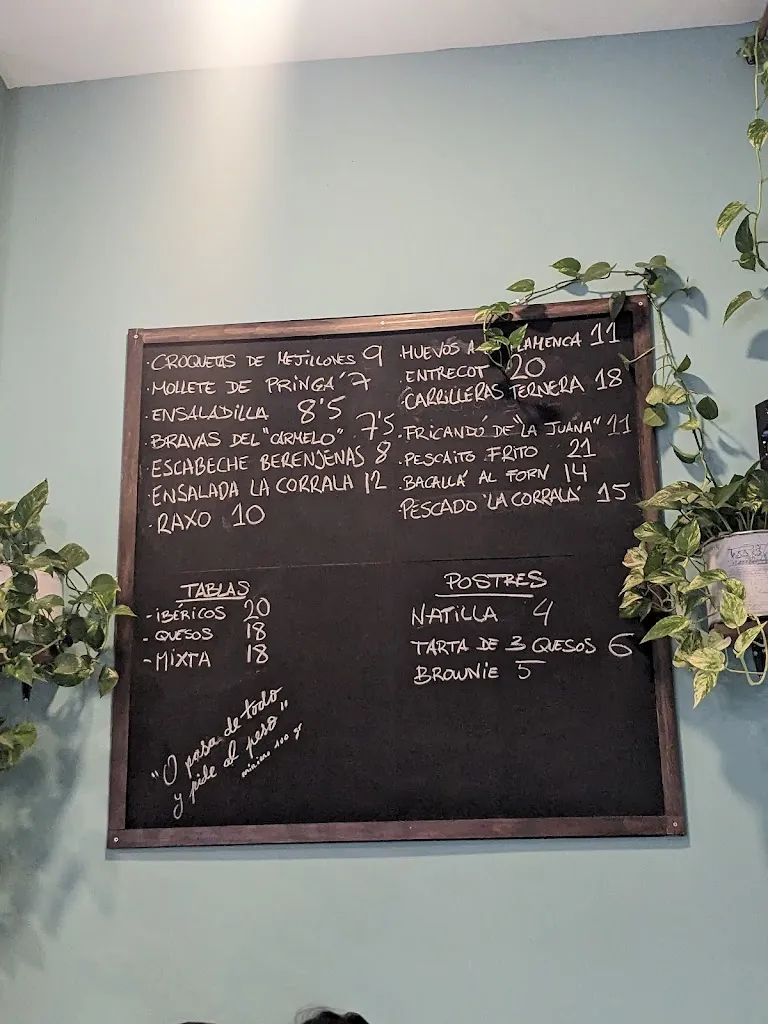 ·CROQUETAS DE MEJILLONES 9
·MOLLETE DE PRINGA' 7
·ENSALADILLA 8'5
·BRAVAS DEL "CARMELO" 7'5
·ESCABECHE BERENJENAS 8
·ENSALADA LA CORRALA 12
·RAXO 10
·HUEVOS A LAMENCA 11
·ENTRECOT 20
CARRILLERAS TERNERA 18
·FRICANDÚ DE "LA JUANA" 11
·PESCAITO FRITO 21
·BACALLÀ AL FORN 14
·PESCADO "LA CORRALA" 15
TABLAS
-IBÉRICOS 20
-QUESOS 18
-MIXTA 18
"O pasa de todo
y pide al peso"
mínimo 100 gr
POSTRES
NATILLA 4
TARTA DE 3 QUESOS 6
BROWNIE 5